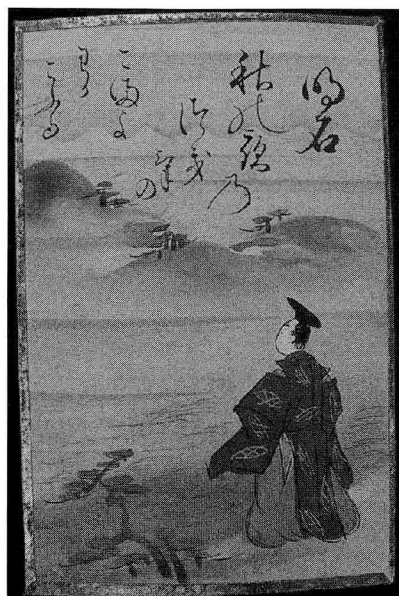 明石
秋の夜乃
つき
毛の
こまよ
わか
こふる